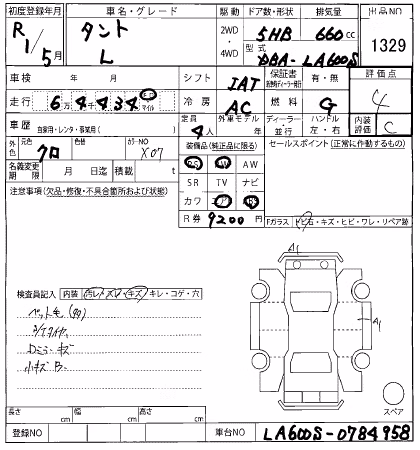 初度登録年月 車名・グレード 駆動 ドア数・形状 排気量 出品NO
R1/5月 タント L 2WD・4WD 5HB 660cc 1329
型式 DBA-LA600S
車検 年 月 シフト IAT 保証書 有・無 評価点
走行 6万4千434 km マイル 冷房 AC 燃料 G 4
車歴 自家用・レンタ・事業用( ) 定員 4人 外車モデル 年 ディーラー・並行 ハンドル 左・右 内装評価 C
外色 元色 クロ 色替 カラーNO X07 装備品(純正品に限る) セールスポイント(正常に作動するもの)
PS PW AW
名義変更期限 月 日迄 積載 t SR TV ナビ
注意事項(欠品・修復・不具合箇所および状態) カワ エアB
R券 9200円 Fガラス トビ石・キズ・ヒビ・ワレ・リペア跡
A1
検査員記入 内装 汚レ・スレ・キズ・キレ・コゲ・穴
A1
ペット毛
Dミラーキズ
小キズ
スペア
長さ cm 幅 cm 高さ cm
登録NO 車台NO LA600S-0784958